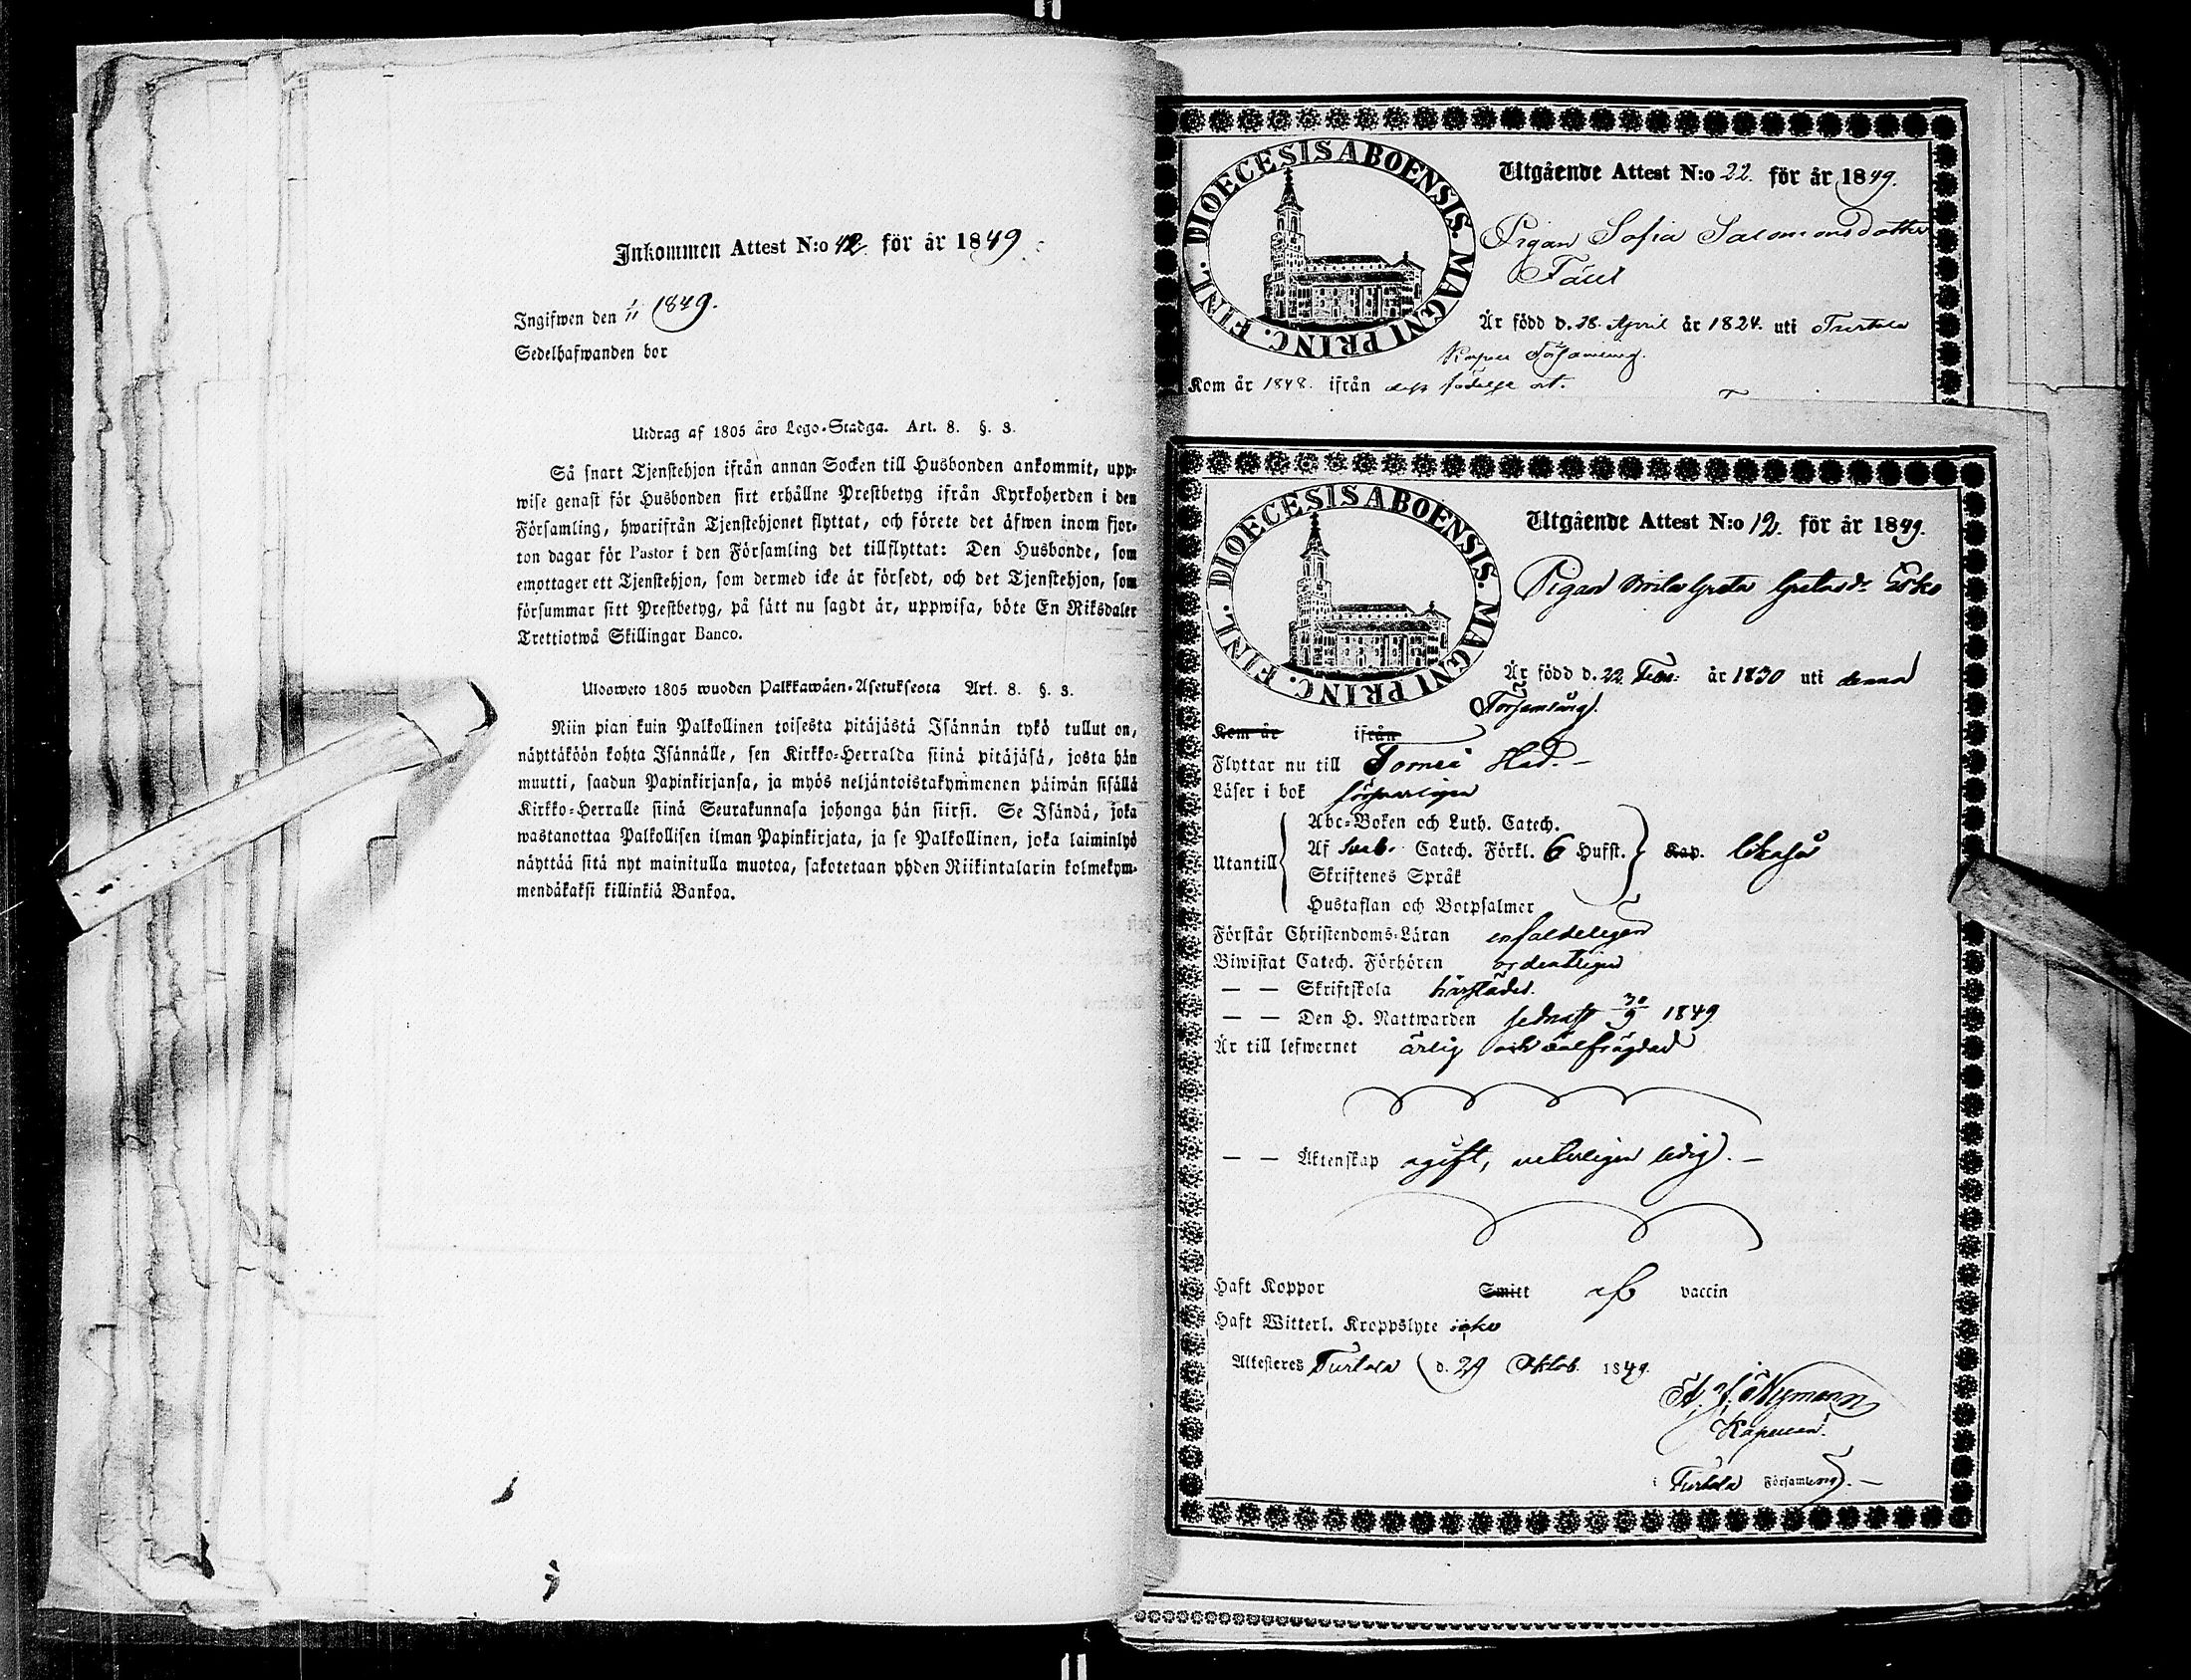 Inkommen Attest N:o 42. för år 1849.
Ingifwen den 1/11 1849.
Sedelhafwanden bor
Utdrag af 1805 års Lego-Stadga. Art. 8. §. 3.
Så snart Tjenstehjon ifrån annan Socken till Husbonden ankommit, upp-
wise genast för Husbonden sitt erhållne Prestbetyg ifrån Kyrkoherden i den
Församling, hwarifrån Tjenstehjonet flyttat, och förete det äfwen inom fjor-
ton dagar för Pastor i den Församling det tillflyttat: Den Husbonde, som
emottager ett Tjenstehjon, som dermed icke är försedt, och det Tjenstehjon, som
försummar sitt Prestbetyg, på sätt nu sagdt är, uppwisa, böte En Riksdaler
Trettiotwå Skillingar Banco.
Ulosweto 1805 wuoden Palkkawäen-Asetuksesta Art. 8. §. 3.
Niin pian kuin Palkollinen toisesta pitäjästä Isännän tykö tullut on,
näyttäköön kohta Isännälle, sen Kirkko-Herralda siinä pitäjäsä, josta hän
muutti, saadun Papinkirjansa, ja myös neljäntoistakymmenen päiwän sisällä
Kirkko-Herralle siinä Seurakunnasa johonga hän siirsi. Se Isändä, joka
wastanottaa Palkollisen ilman Papinkirjata, ja se Palkollinen, joka laiminlyö
näyttää sitä nyt mainitulla muotoa, sakotetaan yhden Riikintalarin kolmekym-
mendäkaksi killinkiä Bankoa.
DIOECESIS ABOENSIS. MAGNI PRINC. FINL.
Utgående Attest N:o 22. för år 1849.
Pigan Sofia Salomonsdotter
Är född d. 18. April år 1824. uti Turtola
Kapell Församling.
Kom år 1848. ifrån dess födelse ort.
DIOECESIS ABOENSIS. MAGNI PRINC. FINL.
Utgående Attest N:o 12. för år 1849.
Pigan Greta
Är född d. 22. Febr. år 1830 uti denna
Församling.
Kom år ifrån
Flyttar nu till Torneå Stad. —
Läser i bok försvarligen
Abc-Boken och Luth. Catech.
Utantill Af Sveb. Catech. Förkl. 6 Hufst. Kap.
Skriftenes Språk
Hustaflan och Botpsalmer
Förstår Christendoms-Läran enfaldeligen
Biwistat Catech. Förhören ordentligen
— — Skriftskola härstädes.
— — Den H. Nattwarden sednast 30/9 1849
Är till lefwernet ärlig och välfrägdad
— — Äktenskap ogift, veterligen ledig. —
Haft Koppor Smitt af vaccin
Haft Witterl. Kroppslyte icke
Attesteres Turtola d. 29 Oktob. 1849.
Nymann
Kapellan
i Turtola Församling. —